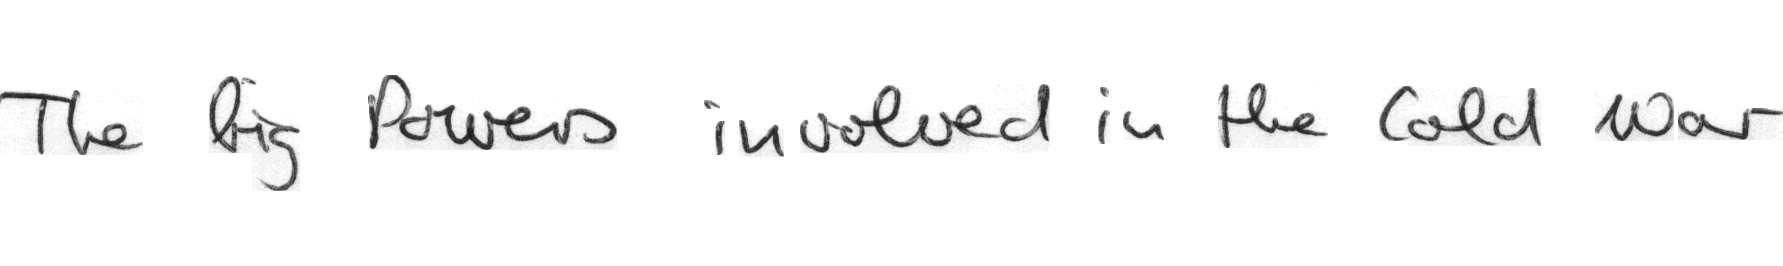 The big Powers involved in the Cold War